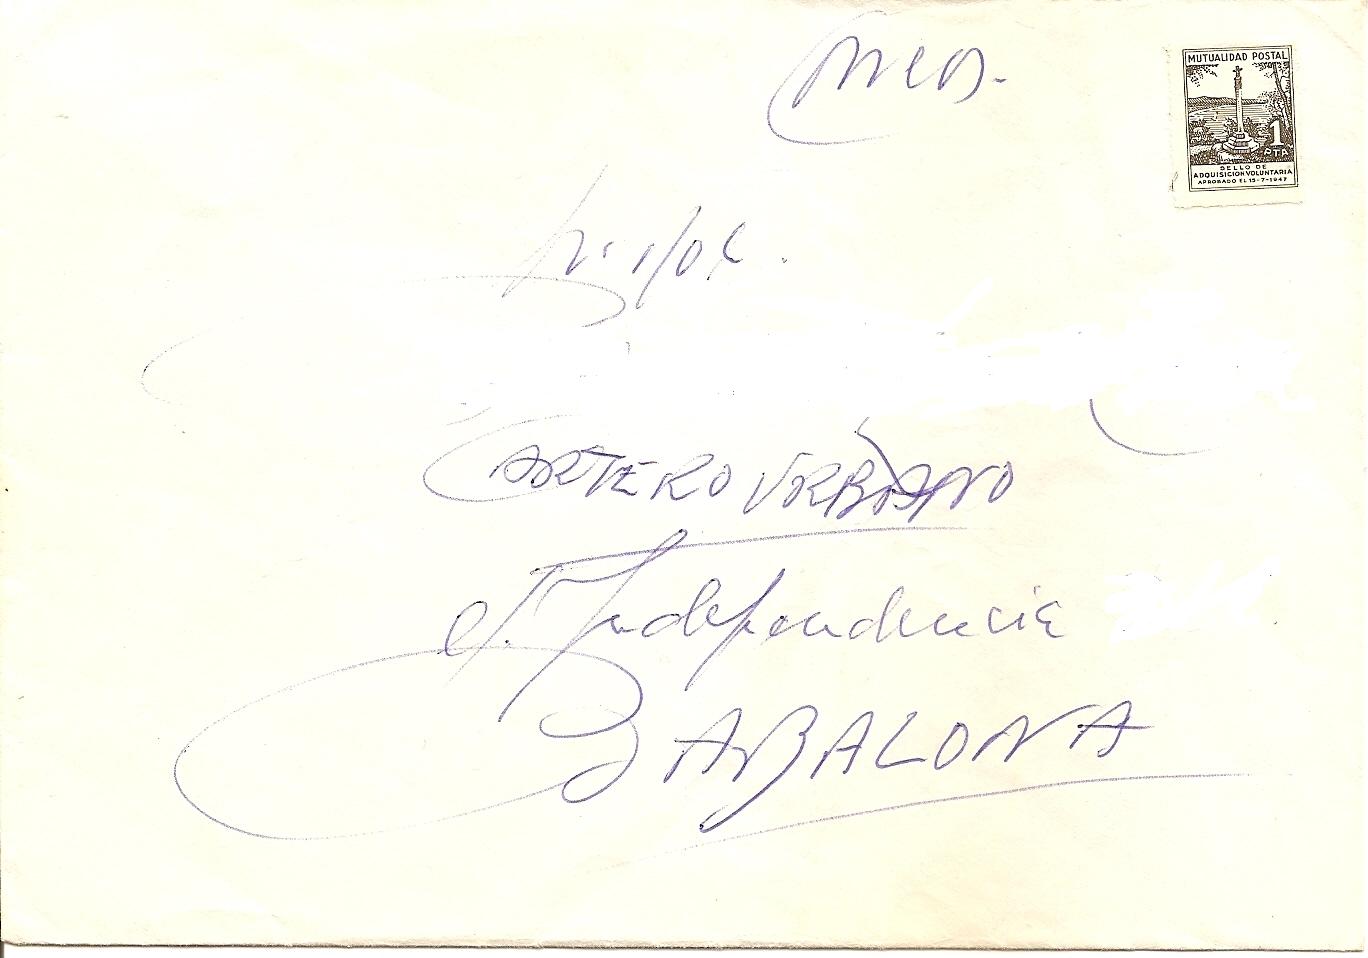 MUTUALIDAD POSTAL
1
PTA
SELLO DE
ADQUISICION VOLUNTARIA
APROBADO EL 15-7-1947
CARTERO URBANO
c/. Independencia
BADALONA